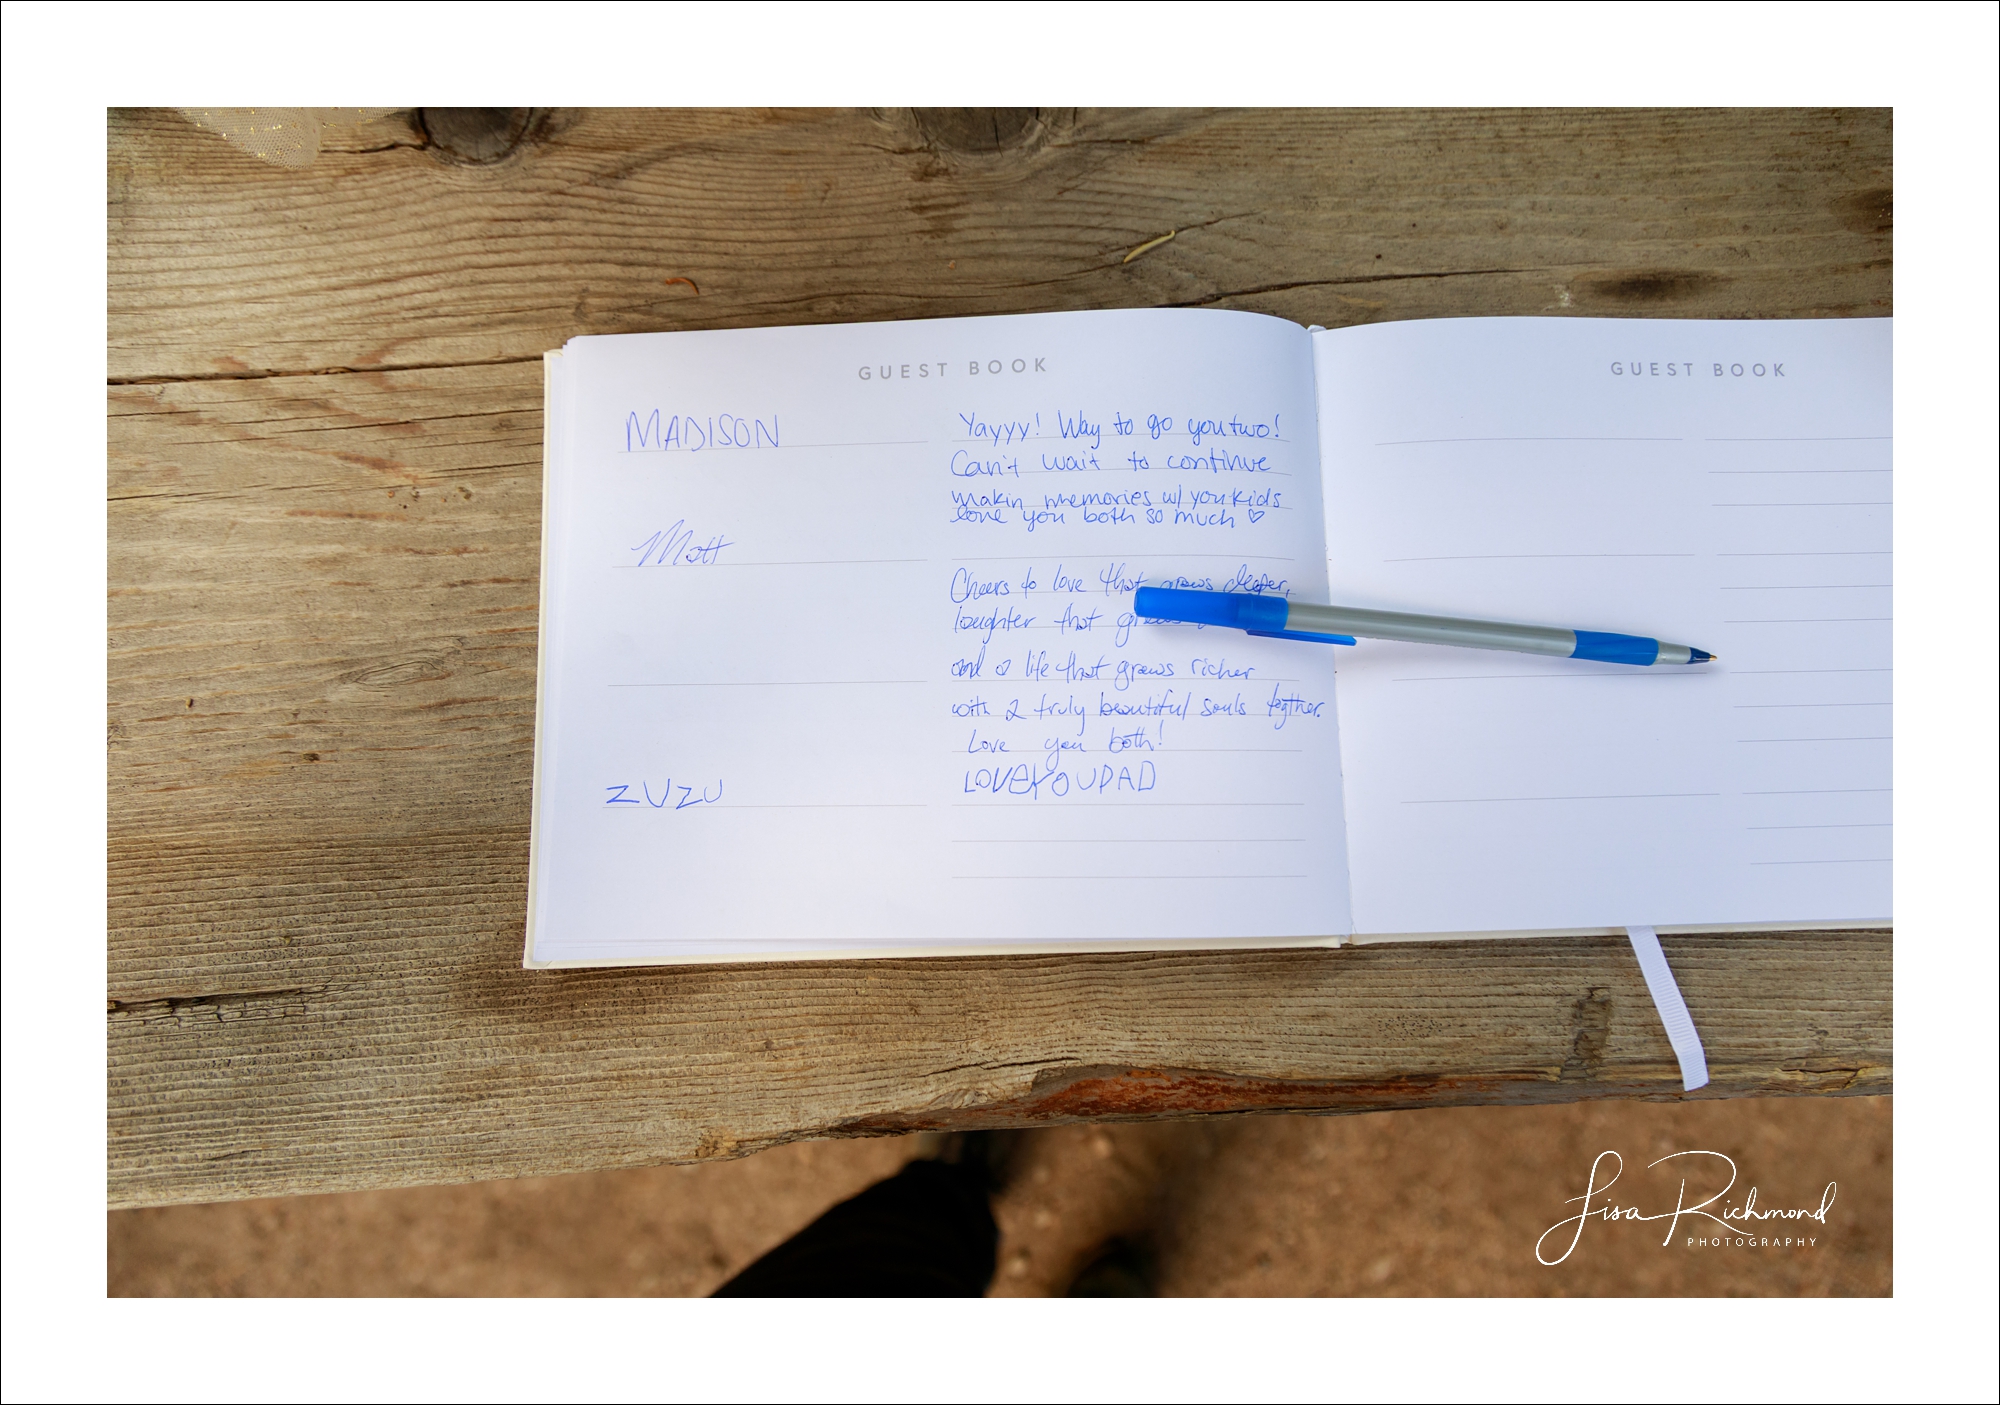 GUEST BOOK
MADISON
Yayyy! Way to go you two!
Can't wait to continue
makin memories w/ you kids
love you both so much ♡
Matt
Cheers to love that grows deeper,
laughter that grows
and a life that grows richer
with 2 truly beautiful souls togther.
Love you both!
ZUZU
LOVEYOUPAD
GUEST BOOK
Lisa Richmond
PHOTOGRAPHY